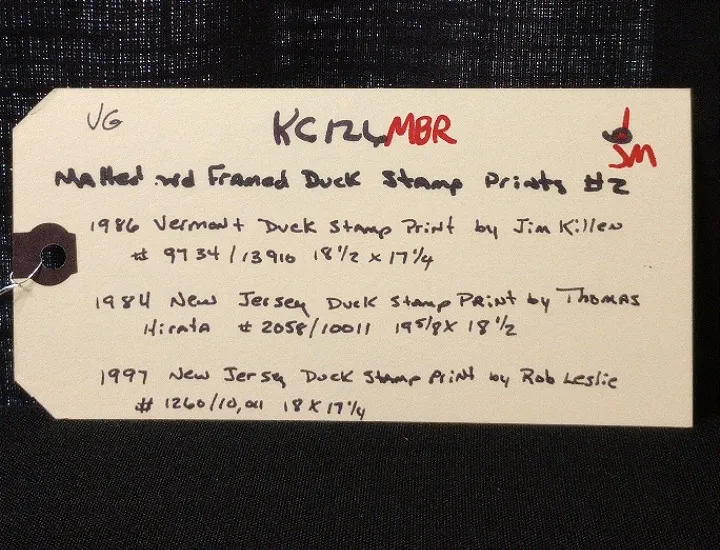 VG KC126 MBR 1
SM
Matted and Framed Duck Stamp Prints #2
1986 Vermont Duck Stamp Print by Jim Killen
# 9734/13910 18 1/2 x 17 1/4
1984 New Jersey Duck Stamp Print by Thomas
Hirata # 2058/10011 19 5/8 X 18 1/2
1997 New Jersey Duck Stamp Print by Rob Leslie
# 1260/10,011 18 X 17 1/4